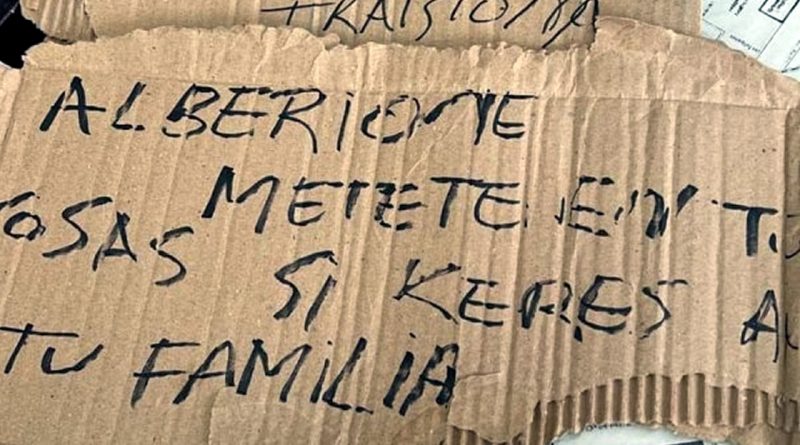 ALBERIONE
METETE EN TU
OSAS SI KERES A
TU FAMILIA